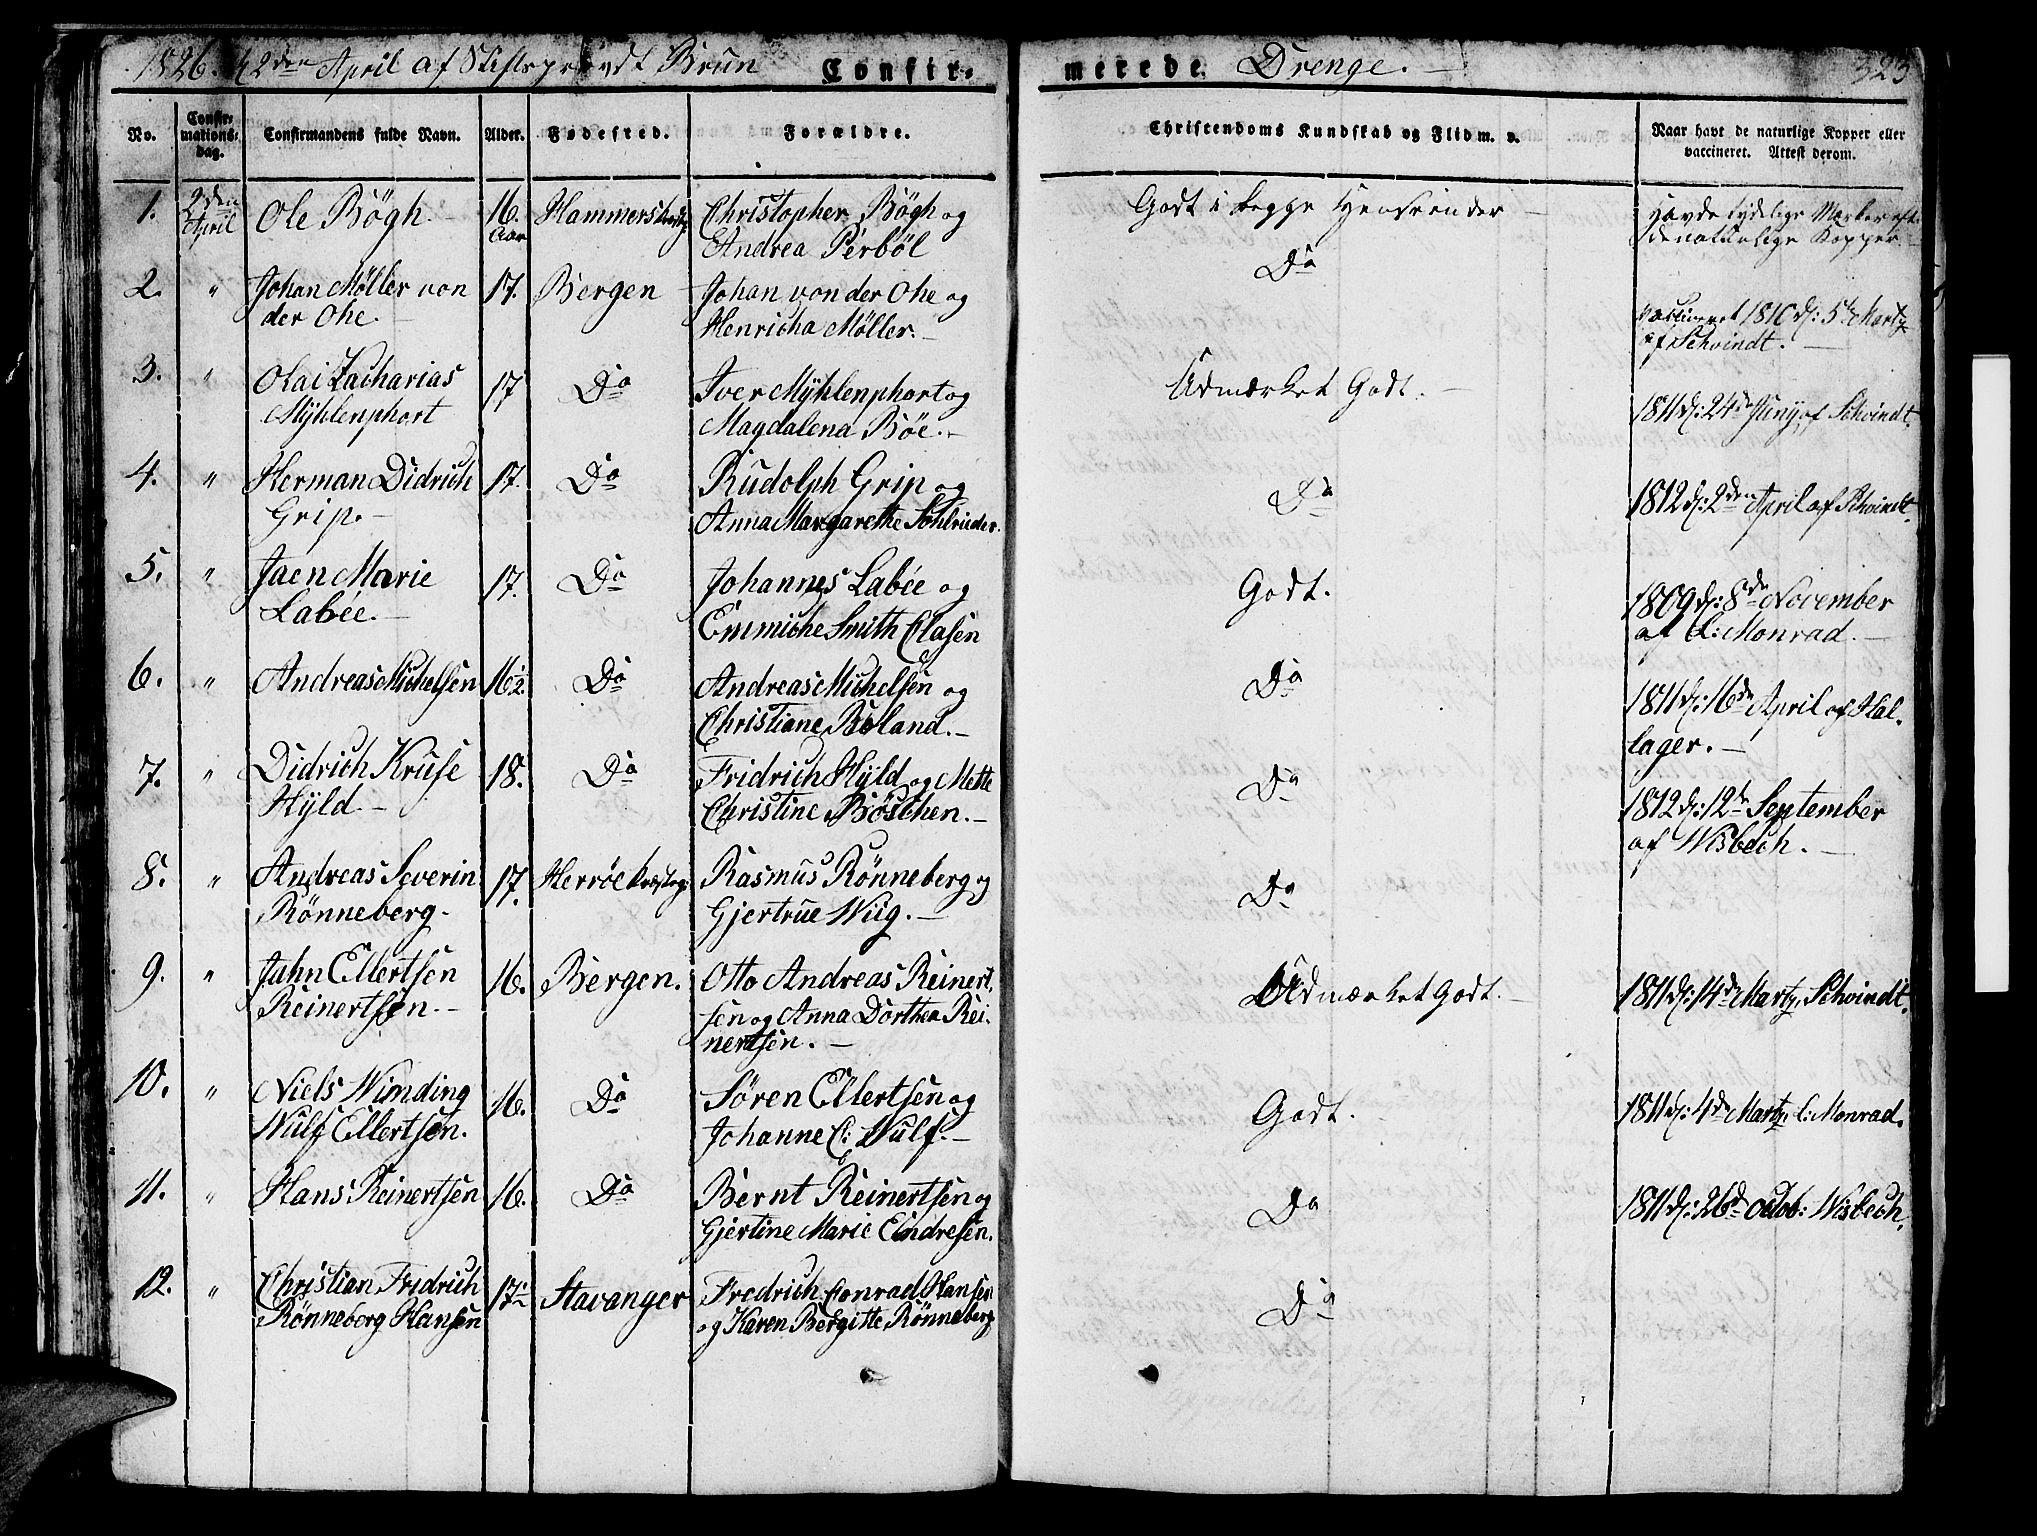 1826. d. 2den April af Stiftsprovdt Brun Confir-
merede Drenge. 323
No.
Confir-
mations-
dag.
Confirmandens fulde Navn.
Alder.
Fødested.
Forældre.
Christendoms Kundskab og Flid m. v.
Naar havt de naturlige Kopper eller
vaccineret. Attest derom.
1. 2den April Ole Bögh. 16. Aar Christopher Bögh og
Andrea Perböl
Godt i begge Henseender
Havde tydelige Mærker eft.
de naturlige Kopper
2. " Johan Møller von
der Ohe. 17. Bergen Johan von der Ohe og
Henricha Møller.
Do
vaccineret 1810 d: 5te Marty
af Schvindt.
3. " Olai Zacharias
Mÿhlenphort 17 Do Iver Mÿhlenphort og
Magdalena Böe.
Udmærket Godt.
1811 d: 24de Juny af Schvindt.
4. " Herman Didrich
Grip. 17. Do Rudolph Grip og
Anna Margarethe
Do
1812 d: 2den April af Schvindt.
5. " Jaen Marie
Labée. 17. Do Johannes Labée og
Emmiche Smith Clasen
Godt.
1809 d: 8de November
af C: Monrad.
6. " Andreas Michelsen 16½ Do Andreas Michelsen og
Christiane Boland.
Do
1811 d: 16de April af Hal-
lager.
7. " Didrich Kruse
Hyld. 18. Do Fridrich Hyld og Mette
Christine Böschen.
Do
1812 d: 12te September
af Wisbech.
8. " Andreas Severin
Rönneberg. 17. Rasmus Rönneberg og
Gjertrue Wiig.
Do
9. " Jahn Ellertsen
Reinertsen. 16. Bergen. Otto Andreas Reinert-
sen og Anna Dorthea Rei-
nertsen.
Udmærket Godt.
1811 d: 14de Marty, Schvindt.
10. " Niels Wimding
Wulf Ellertsen. 16. Do Søren Ellertsen og
Johanne C: Wulf.
Godt.
1811 d: 4de Marty, C: Monrad.
11. " Hans Reinertsen 16. Do Bernt Reinertsen og
Gjertine Marie Eindresen.
Do
1811 d: 26de Octob: Wisbech.
12. " Christian Fridrich
Rönneberg Hansen 17½ Stavanger Fredrich Conrad Hansen
og Karen Bergitte Rönneberg
Do